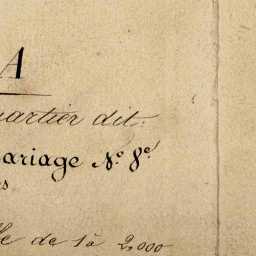 A
uartier dit.
ariage N.° 8.e
rs
lle de 1 à 2,000